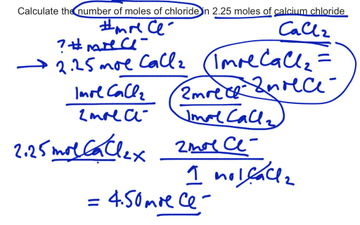 Calculate the number of moles of chloride in 2.25 moles of calcium chloride
#mole Cl⁻
CaCl₂
? # mole Cl⁻
→ 2.25 mole CaCl₂
1 mole CaCl₂ =
2 mole Cl⁻
1 mole CaCl₂ / 2 mole Cl⁻
2 mole Cl⁻ / 1 mole CaCl₂
2.25 mole CaCl₂ × 2 mole Cl⁻ / 1 mol CaCl₂
= 4.50 mole Cl⁻